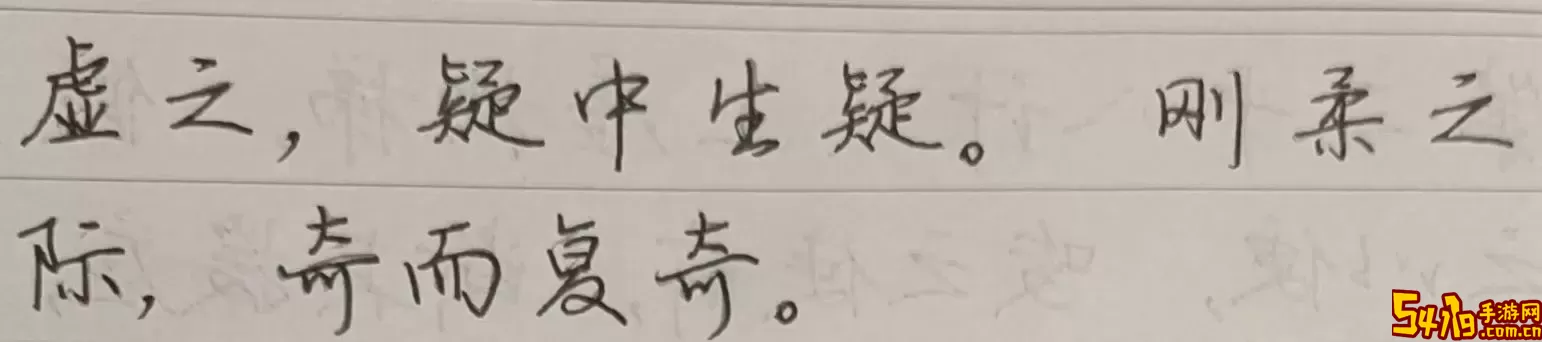 虚之，疑中生疑。刚柔之
际，奇而复奇。
5417g手游网
.com.cn